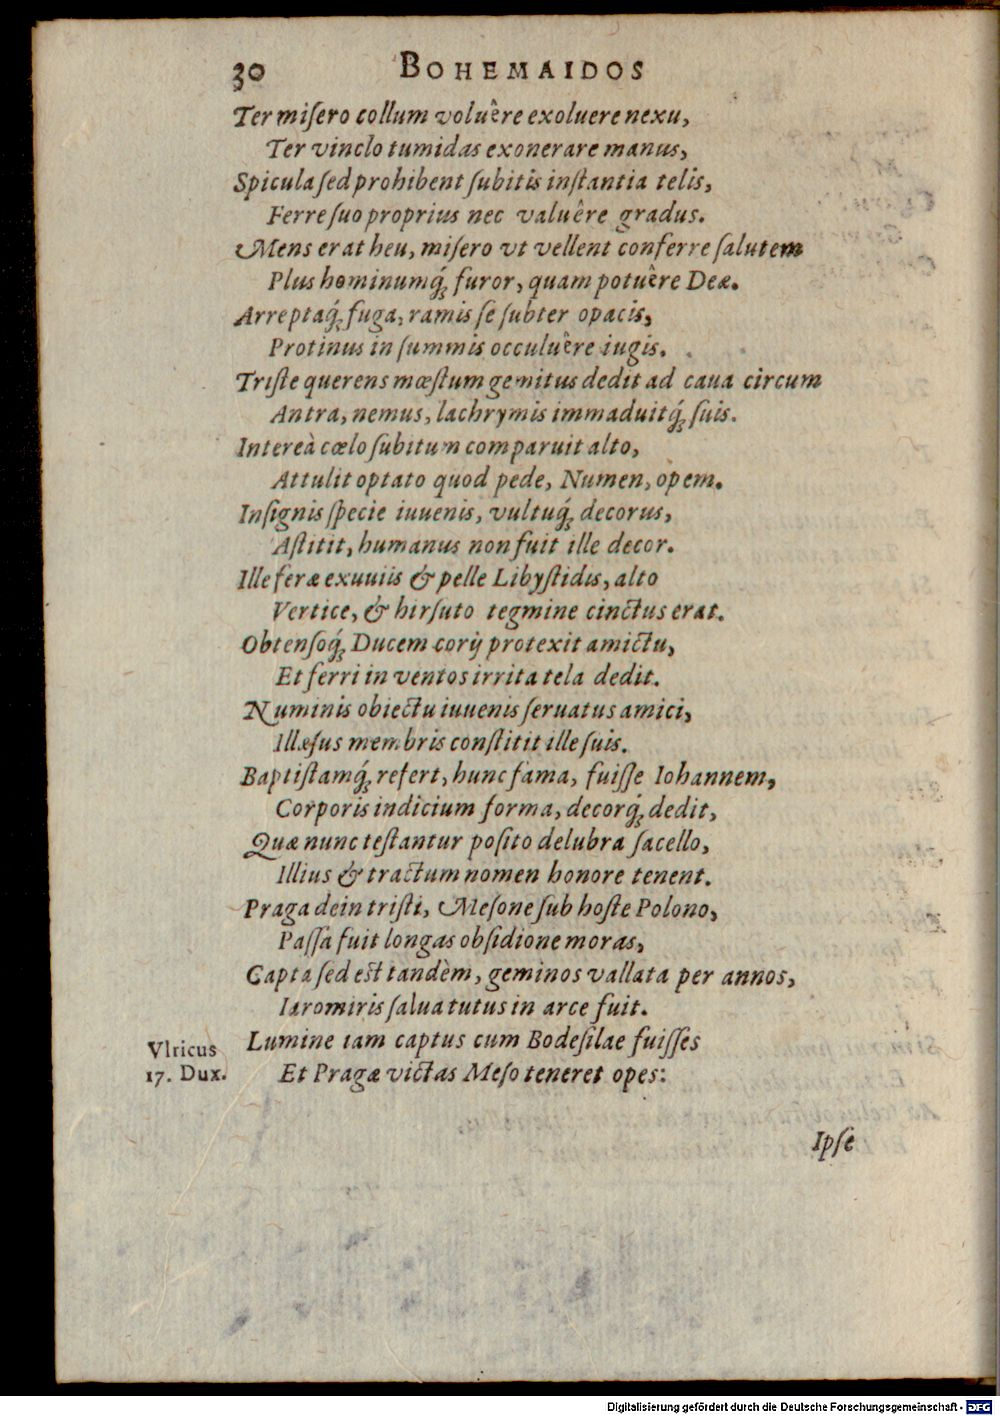 30 BOHEMAIDOS
Ter miſero collum voluêre exoluere nexu,
Ter vinclo tumidas exonerare manus,
Spicula ſed prohibent ſubitis inſtantia telis,
Ferre ſuo proprius nec valuêre gradus.
Mens erat heu, miſero vt vellent conferre ſalutem
Plus hominumq́; furor, quam potuêre Deæ.
Arreptaq́; fuga, ramis ſe ſubter opacis,
Protinus in ſummis occuluêre iugis.
Triſte querens mœſtum gemitus dedit ad caua circum
Antra, nemus, lachrymis immaduitq́; ſuis.
Intereà cœlo ſubitum comparuit alto,
Attulit optato quod pede, Numen, opem.
Inſignis ſpecie iuuenis, vultuq́; decorus,
Aſtitit, humanus non fuit ille decor.
Ille feræ exuuiis & pelle Libyſtidis, alto
Vertice, & hirſuto tegmine cinctus erat.
Obtenſoq́; Ducem corij protexit amictu,
Et ferri in ventos irrita tela dedit.
Numinis obiectu iuuenis ſeruatus amici,
Illæſus membris conſtitit ille ſuis.
Baptiſtamq́; refert, hunc fama, fuiſſe Iohannem,
Corporis indicium forma, decorq́; dedit,
Quæ nunc teſtantur poſito delubra ſacello,
Illius & tractum nomen honore tenent.
Praga dein triſti, Meſone ſub hoſte Polono,
Paſſa fuit longas obſidione moras,
Capta ſed eſt tandèm, geminos vallata per annos,
Iaromiris ſalua tutus in arce fuit.
Vlricus
17. Dux.
Lumine iam captus cum Bodeſilae fuiſſes
Et Pragæ victas Meſo teneret opes:
Ipſe
Digitalisierung gefördert durch die Deutsche Forschungsgemeinschaft - DFG